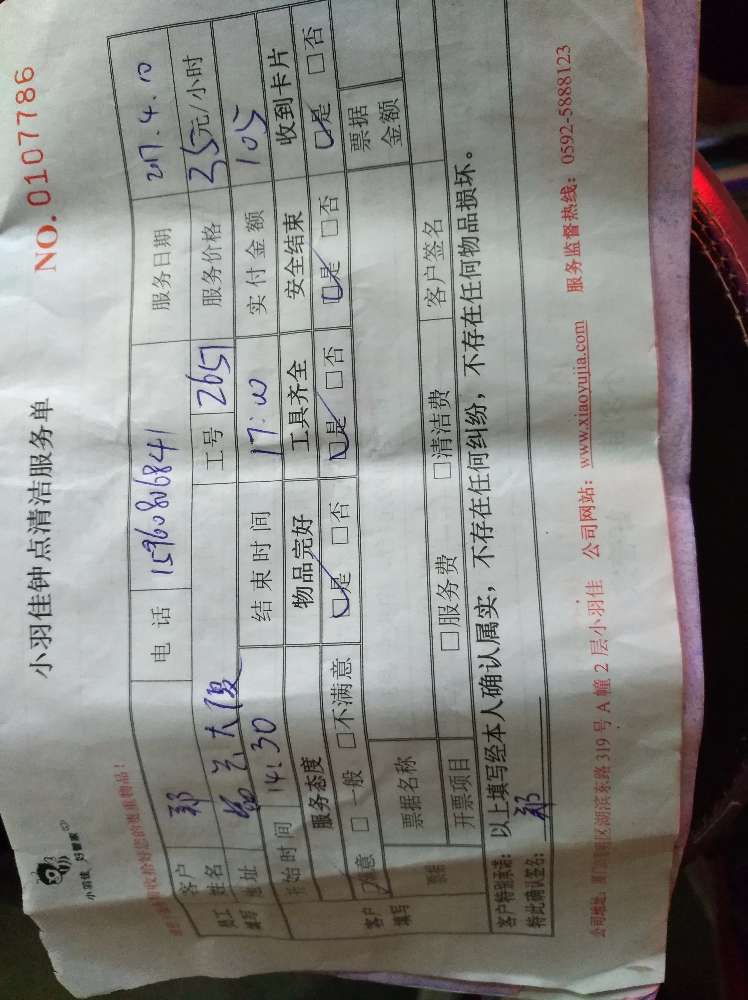 小羽佳 好管家
小羽佳钟点清洁服务单
NO. 0107786
客户姓名 郑 电话 15960806841 服务日期 2017.4.10
员工填写 地址 大厦 工号 2651 服务价格 35元/小时
开始时间 14:30 结束时间 17:00 实付金额 105
客户填写 服务态度 物品完好 工具齐全 安全结束 收到卡片
☑满意 □一般 □不满意 ☑是 □否 ☑是 □否 ☑是 □否 ☑是 □否
票据名称 票据金额
开票项目 □服务费 □清洁费 客户签名
客户特别承诺: 以上填写经本人确认属实，不存在任何纠纷，不存在任何物品损坏。
特此确认签名: 郑
公司地址: 湖滨东路319号A幢2层小羽佳 公司网站: www.xiaoyujia.com 服务监督热线: 0592-5888123